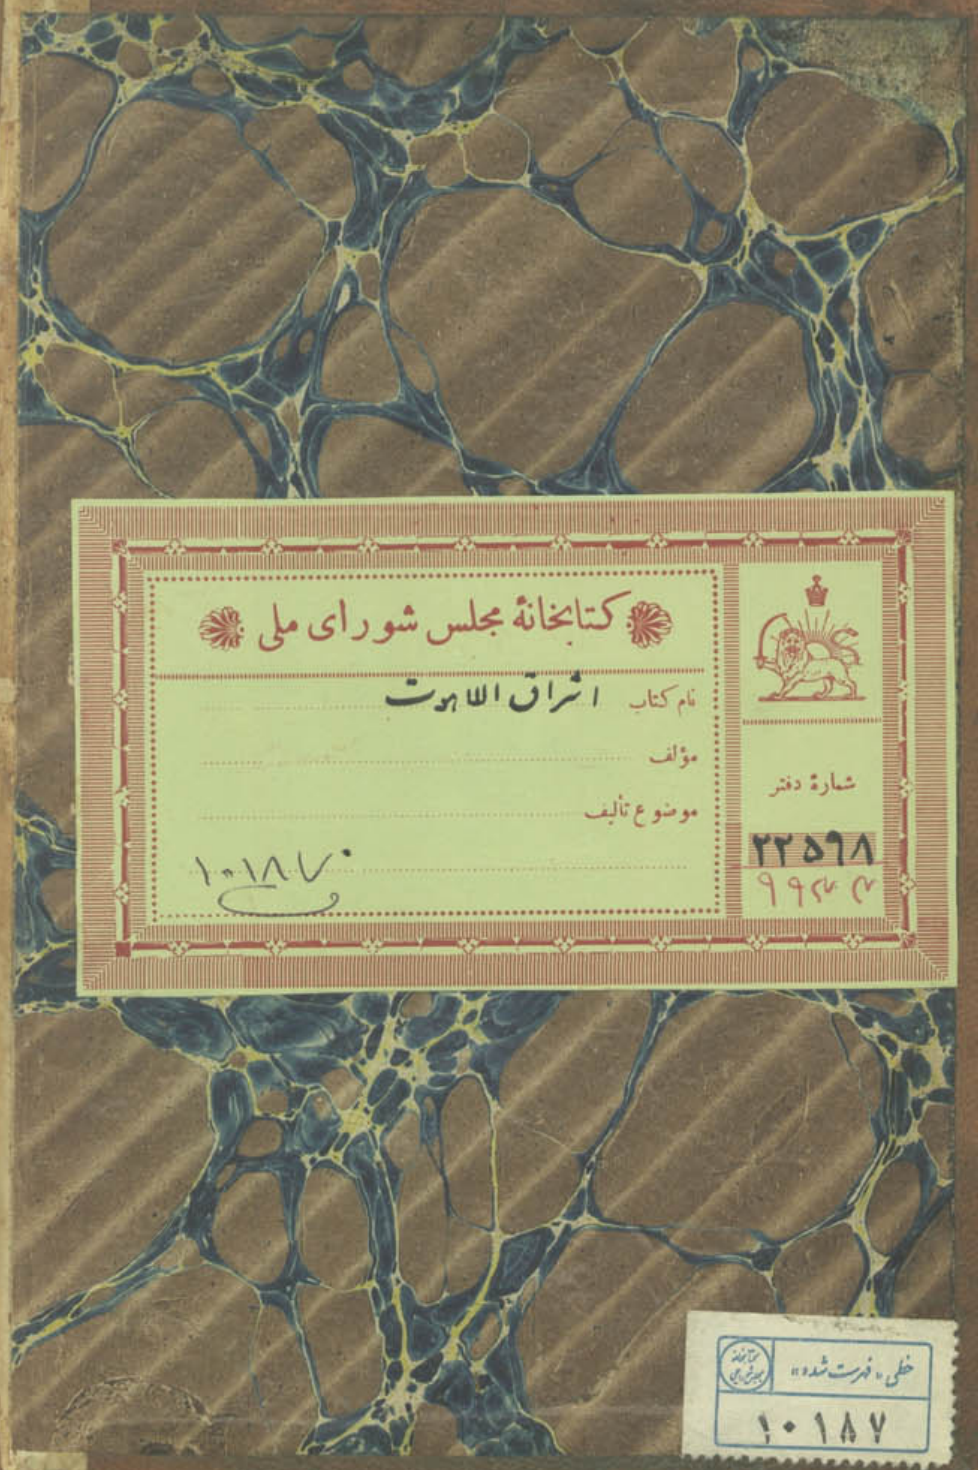 کتابخانهٔ مجلس شورای ملی
نام کتاب اشراق اللاهوت
مؤلف
موضوع تألیف
۱۰۱۸۷
شمارهٔ دفتر
۲۲۵۹۸
خطی «فهرست شده»
۱۰۱۸۷